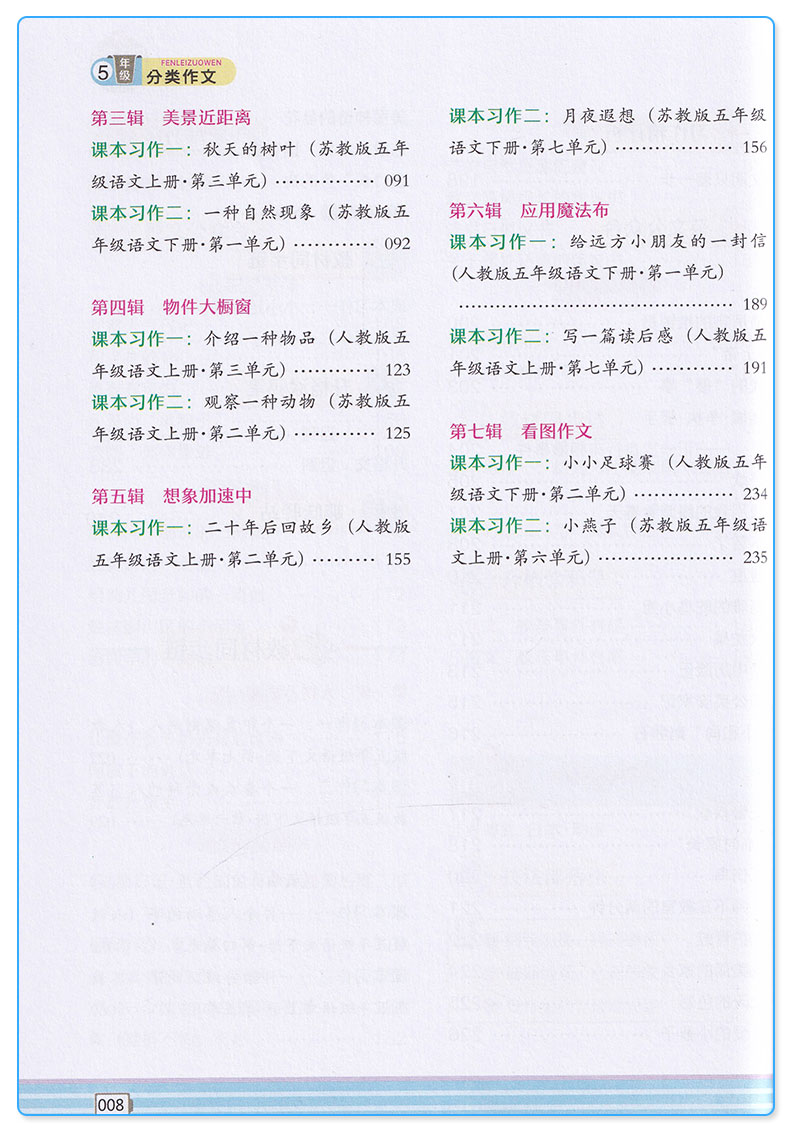 5年级
FENLEIZUOWEN
分类作文
第三辑 美景近距离
课本习作一：秋天的树叶（苏教版五年
级语文上册·第三单元）…………… 091
课本习作二：一种自然现象（苏教版五
年级语文下册·第一单元）………… 092
第四辑 物件大橱窗
课本习作一：介绍一种物品（人教版五
年级语文上册·第三单元）………… 123
课本习作二：观察一种动物（苏教版五
年级语文上册·第二单元）………… 125
第五辑 想象加速中
课本习作一：二十年后回故乡（人教版
五年级语文上册·第二单元）……… 155
课本习作二：月夜遐想（苏教版五年级
语文下册·第七单元）……………… 156
第六辑 应用魔法布
课本习作一：给远方小朋友的一封信
（人教版五年级语文下册·第一单元）
…………………………………… 189
课本习作二：写一篇读后感（人教版五
年级语文上册·第七单元）………… 191
第七辑 看图作文
课本习作一：小小足球赛（人教版五年
级语文下册·第二单元）…………… 234
课本习作二：小燕子（苏教版五年级语
文上册·第六单元）………………… 235
008